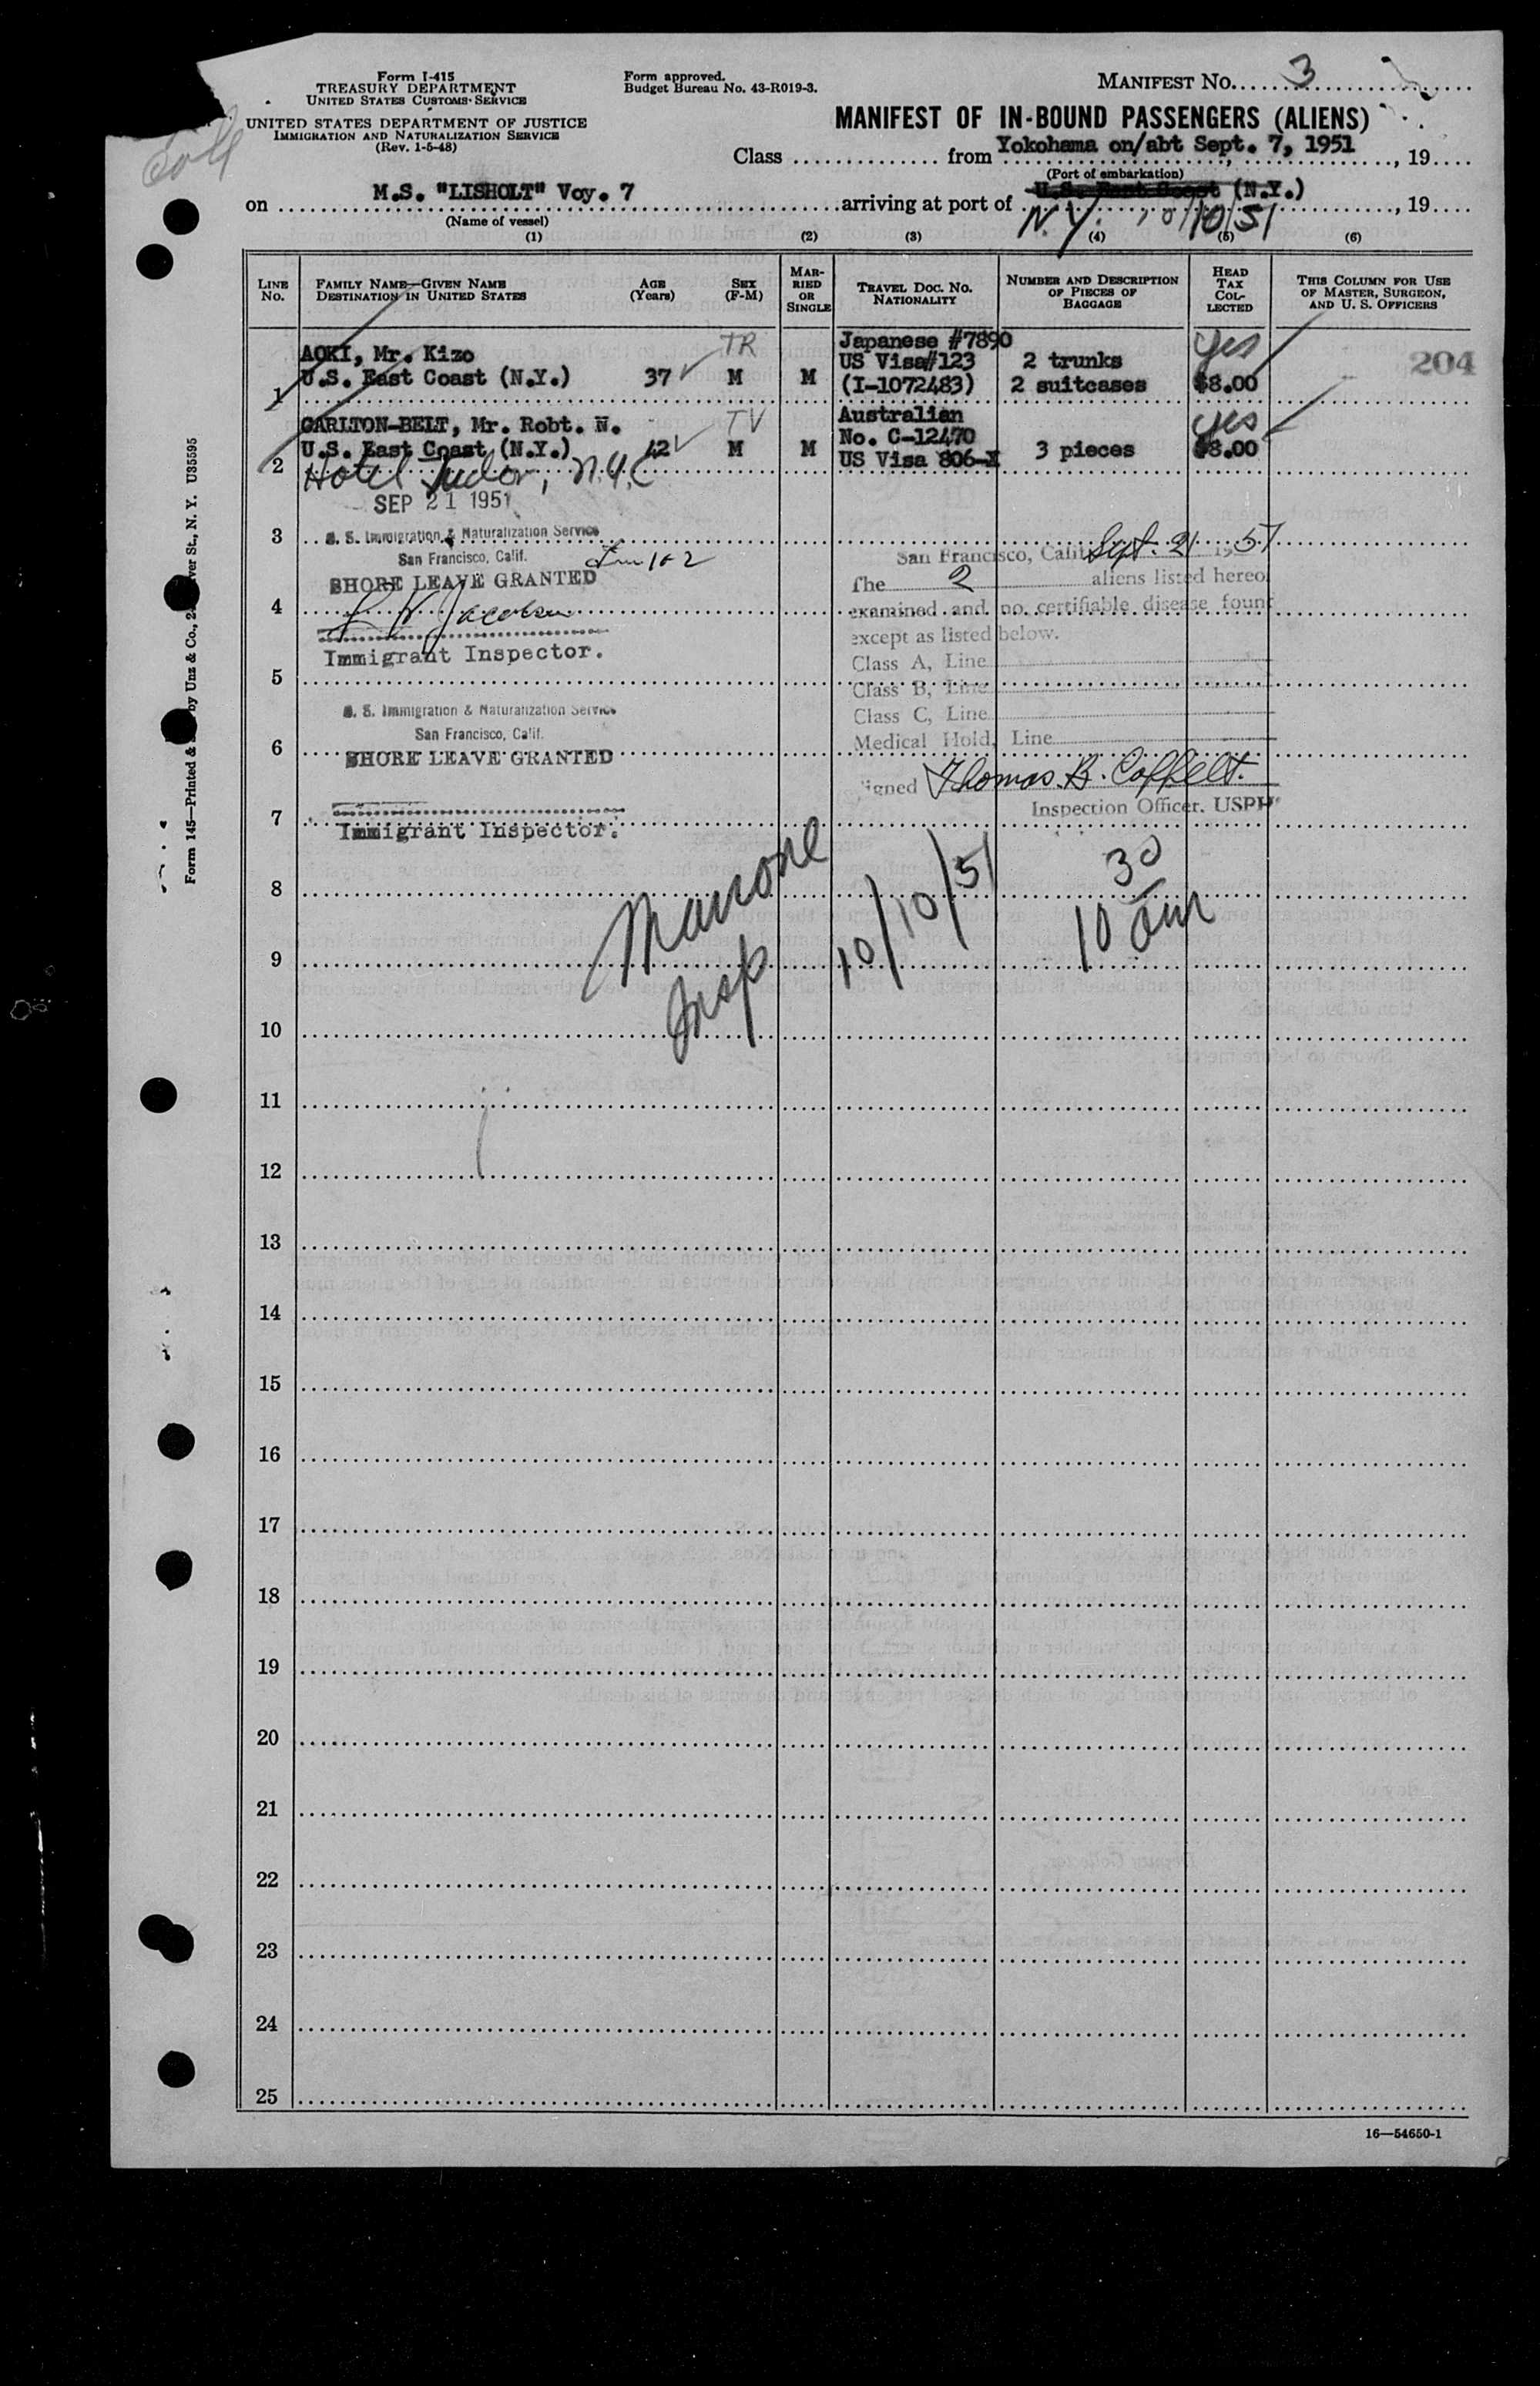 Form I-415
TREASURY DEPARTMENT
UNITED STATES CUSTOMS SERVICE
UNITED STATES DEPARTMENT OF JUSTICE
IMMIGRATION AND NATURALIZATION SERVICE
(Rev. 1-5-48)
Form approved.
Budget Bureau No. 43-R019-3.
MANIFEST No. 3
MANIFEST OF IN-BOUND PASSENGERS (ALIENS)
Class from Yokohama on/abt Sept. 7, 1951, 19
(Port of embarkation)
on M.S. "LISHOLT" Voy. 7 arriving at port of U.S. East Coast (N.Y.), 19
(Name of vessel)
N.Y. 10/10/51
(1) (2) (3) (4) (5) (6)
LINE No.
FAMILY NAME—GIVEN NAME
DESTINATION IN UNITED STATES
AGE (Years)
SEX (F-M)
MARRIED OR SINGLE
TRAVEL DOC. NO.
NATIONALITY
NUMBER AND DESCRIPTION OF PIECES OF BAGGAGE
HEAD TAX COLLECTED
THIS COLUMN FOR USE OF MASTER, SURGEON, AND U. S. OFFICERS
204
AOKI, Mr. Kizo TR Japanese #7890 Yes
U.S. East Coast (N.Y.) 37 M M US Visa#123 2 trunks
1 (I-1072483) 2 suitcases $8.00
CARLTON-BELT, Mr. Robt. N. TV Australian yes
U.S. East Coast (N.Y.) 42 M M No. C-12470 3 pieces $8.00
2 Hotel Tudor, N.Y.C US Visa 806-X
SEP 21 1951
3
U. S. Immigration & Naturalization Service
San Francisco, Calif.
SHORE LEAVE GRANTED
4
Immigrant Inspector.
5
U. S. Immigration & Naturalization Service
San Francisco, Calif.
6
SHORE LEAVE GRANTED
7
Immigrant Inspector.
San Francisco, Calif. Sept. 21 1951
The 2 aliens listed hereon
examined and no certifiable disease found
except as listed below.
Class A, Line
Class B, Line
Class C, Line
Medical Hold, Line
Signed Thomas B. Coffelt.
Inspection Officer. USPH
8
9
Insp
10/10/51
10 30 am
10
11
12
13
14
15
16
17
18
19
20
21
22
23
24
25
16—54650-1